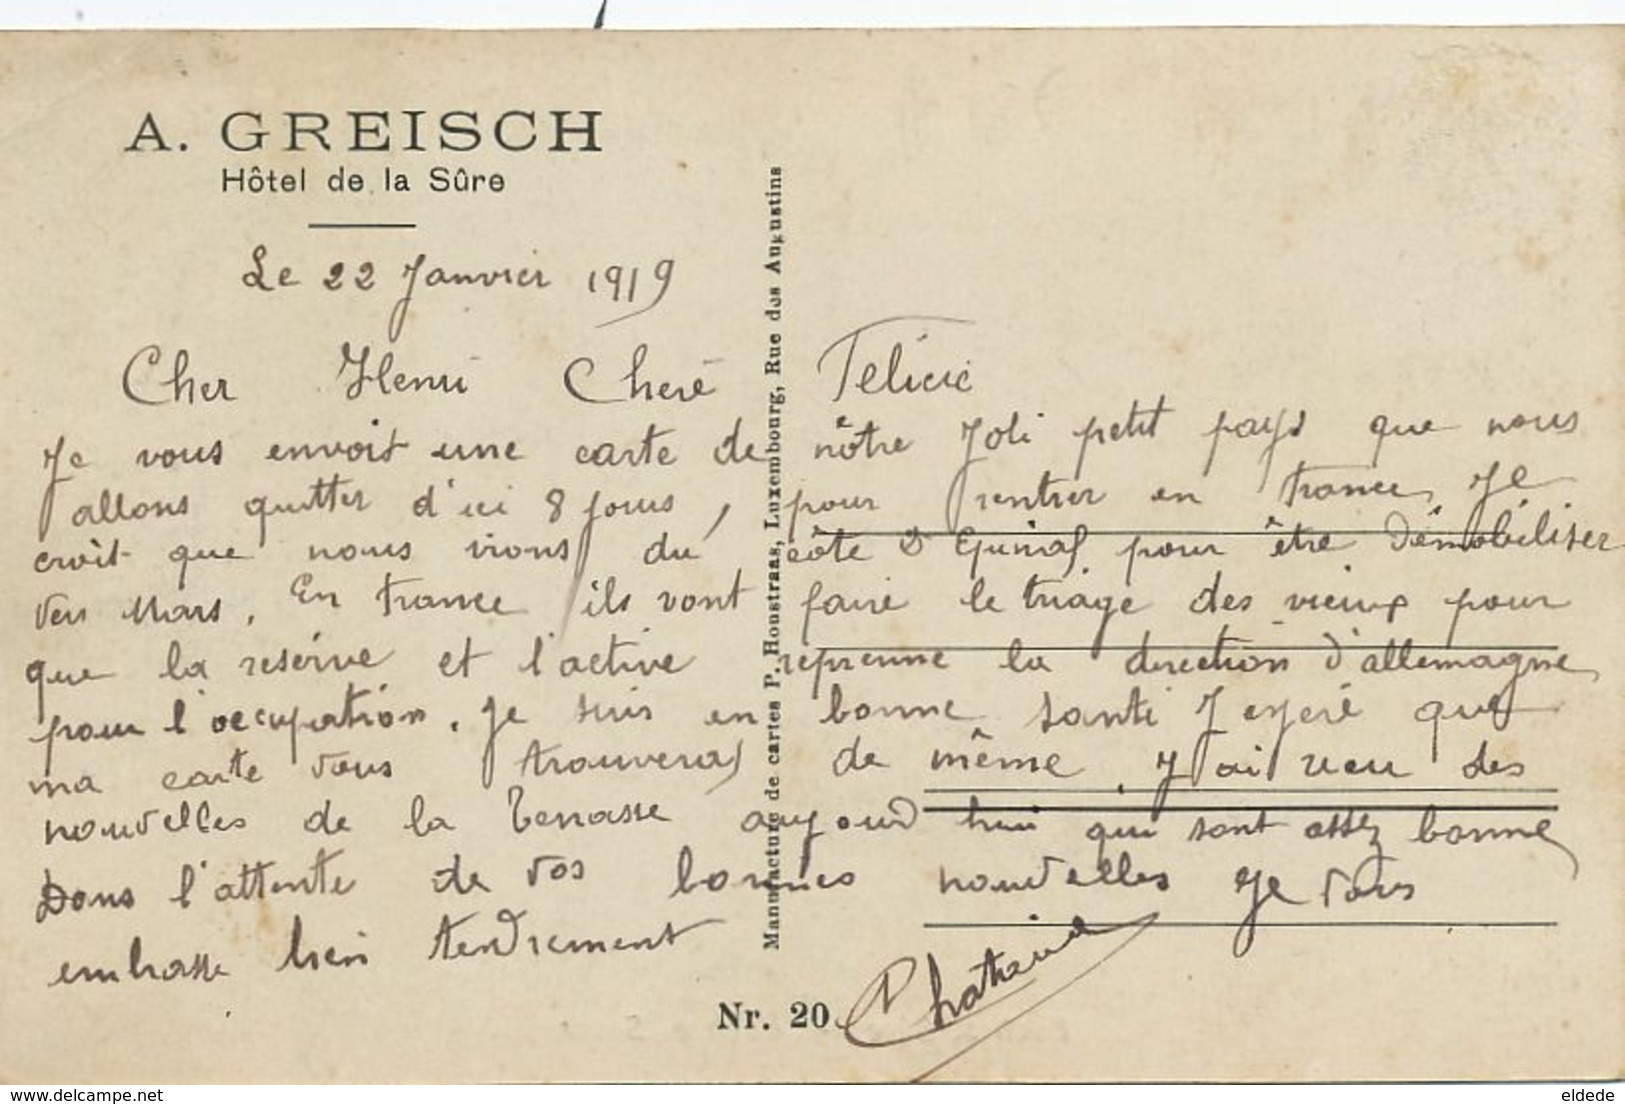 A. GREISCH
Hôtel de la Sûre
Le 22 Janvier 1919
Cher Henri Cheré Félicie
Je vous envoit une carte de nôtre Joli petit pays que nous
allons quitter d'ici 8 jours, pour rentrer en France, Je
croit que nous irons du côte d'Epinal pour être démobiliser
vers Mars. En France ils vont faire le triage des vieux pour
que la reserve et l'active reprenne la direction d'allemagne
pour l'occupation. Je suis en bonne santé J'esperé que
ma carte vous trouveras de même. J'ai reeu des
nouvelles de la Terrasse aujourd hui qui sont assez bonne
Dans l'attente de vos bonnes nouvelles Je vous
embrasse bien tendrement
Manufacture de cartes P. Houstraas, Luxembourg, Rue des Augustins
Nr. 20
eldede
delcampe.net